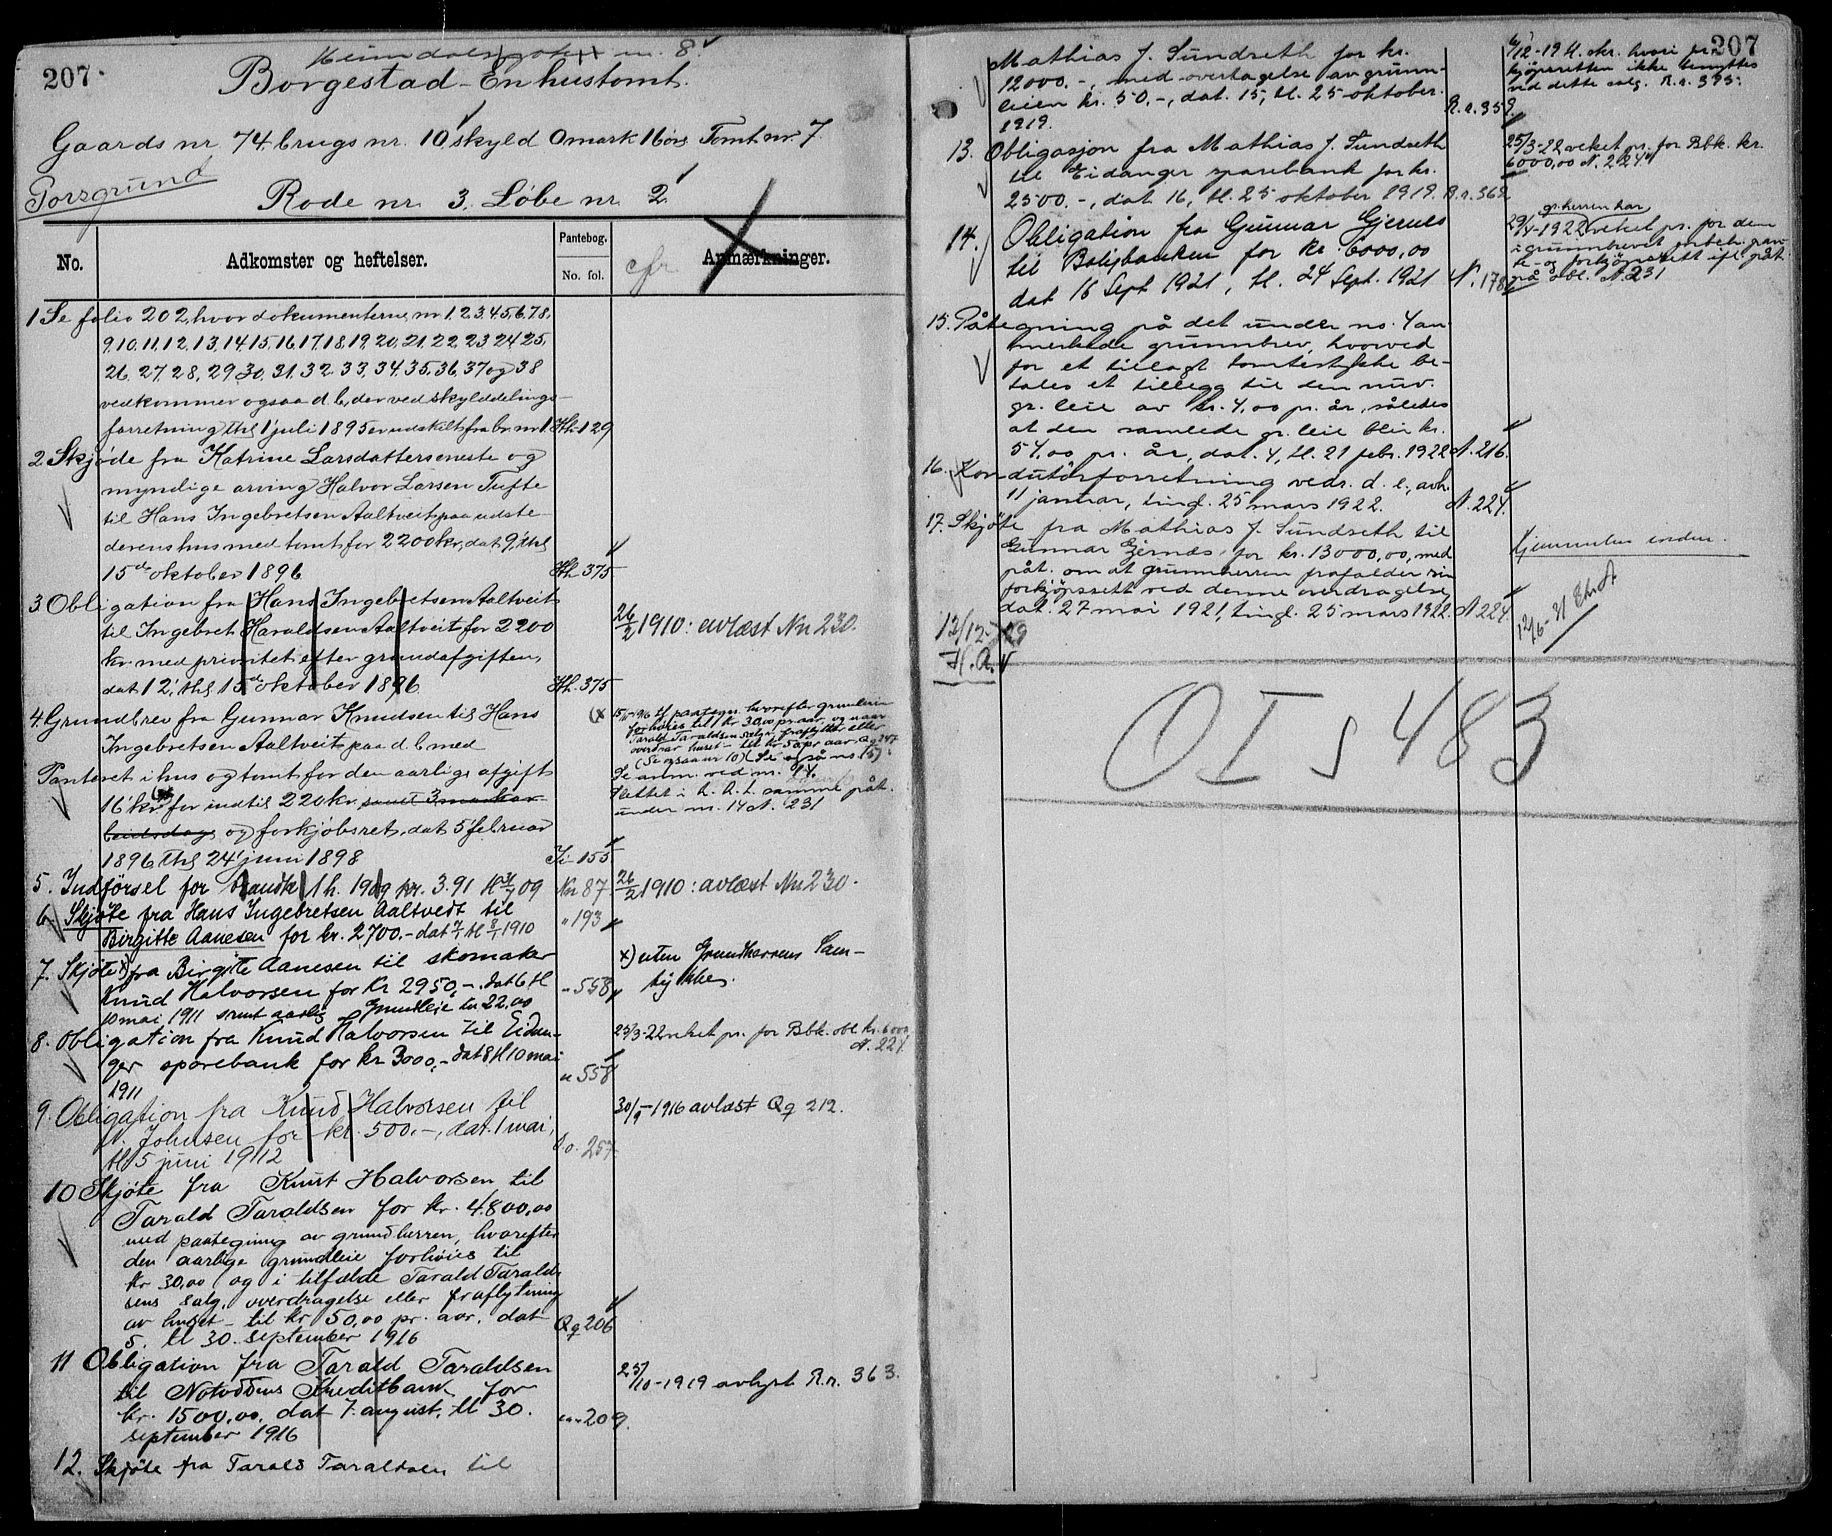 207.
Borgestad - En hustomt.
Gaards nr. 74. brugs nr. 10 skyld 0 mark 16 øre Tomt nr. 7.
Porsgrund
Rode nr. 3. Løbe nr. 2
No.
Adkomster og heftelser.
Pantebog.
No. fol.
cfr
Anmærkninger.
1 Se folio 202, hvor dokumenterne nr 1, 2, 3, 4, 5, 6, 7, 8,
9, 10, 11, 12, 13, 14, 15, 16, 17, 18, 19, 20, 21, 22, 23 24 25,
26, 27, 28, 29 30, 31, 32. 33, 34, 35, 36, 37 og 38
vedkommer ogsaa d. b., der ved skylddelings-
forretning thl 1 juli 1895 er udskilt fra br. nr 1. Hh. 129
2. Skjøde fra Katrine Larsdatters eneste og
myndige arving Halvor Larsen Tufte
til Hans Ingebretsen Aaltveit paa udste-
derens hus med tomt for 2200 kr, dat 9, thl
15de oktober 1896 Hh. 375
3. Obligation fra Hans Ingebretsen Aaltveit
til Ingebret Haraldsen Aaltveit for 2200
kr. med prioritet efter grundafgiften,
dat 12, thl 15de oktober 1896 Hh. 375
26/2 1910: avlæst Nn 230.
4. Grundbrev fra Gunnar Knudsen til Hans
Ingebretsen Aaltveit paa d. b. med
Panteret i hus og tomt for den aarlige afgift
16 kr. for indtil 220 kr. samt 3 mandar-
beidsdage og forkjøbsret, dat 5 februar
1896 thl 24 juni 1898 155
(x 15/11-1916 tl paategn. hvorefter grundleien
forhøies til kr 30,00 pr aar, og naar
Tarald Taraldsen sælger, fraflytter eller
overdrar huset - til kr 50 pr aar. Qq 247
(Se ogsaa nr 10) (Se også no. 15)
Se anm. ved nr. 14.
Slettet i h. t. samme påt.
under nr. 14 N. 231
5. Indførsel for 1 h. 1909 kr. 3.91 09 Nn 87
26/2 1910: avlæst Nn 230.
6. Skjøte fra Hans Ingebretsen Aaltvedt til
Birgitte Aanesen for kr. 2700.- dat 7/1 tl 8/1 1910
" 193
7. Skjøte x) fra Birgitte Aanesen til skomaker
Knud Halvorsen for Kr 2950,-. dat 6 tl
10 mai 1911 samt aarlig Grundleie kr 22,00
" 558
x) uten Grundherrens Sam-
tykke.
8. Obligation fra Knud Halvorsen til Eidan-
ger sparebank for kr 3000,- dat 8 tl 10 mai
1911
" 558
25/3-22 veket pr. for Bbk. obl kr. 6000
N. 224
9. Obligation fra Knud Halvorsen til
N. Johnsen for kr. 500.-, dat. 1 mai,
tl 5 juni 1912
Oo. 257
30/9-1916 avlæst Qq 212.
10 Skjøte fra Knut Halvorsen til
Tarald Taraldsen for kr. 4800,00
med paategning av grundherren, hvorefter
den aarlige grundleie forhøies til
kr 30,00 (og i tilfælde Tarald Tarald-
sens salg, overdragelse eller fraflytning
av huset - til kr 50,00 pr. aar. dat
5. tl 30. september 1916
Qq 206
11 Obligation fra Tarald Taraldsen
til Notoddens Kreditbank for
kr. 1500,00. dat 7. august, tl 30.
september 1916
209
25/10-1919 avlyst R.r. 363.
12. Skjøte fra Tarald Taraldsen til
207
Mathias J. Sundreth for kr.
12000.-, med overtagelse av grunn-
leien kr. 50.-, dat. 15, tl. 25 oktober
1919.
R.r. 359.
kjøpsretten ikke benyttes
ved dette salg. R.r. 395.
13. Obligasjon fra Mathias J. Sundreth
til Eidanger sparebank for kr.
2500.-, dat 16, tl. 25 oktober 1919. R.r. 362
25/3-22 veket pr. for Bbk. kr.
6000,00 N. 224
14. Obligation fra Gunnar Gjernes
til Boligbanken for kr 6000,00
dat 16 Sept 1921, tl. 24 Sept. 1921 N. 178
gr.herren har
29/4-1922 veket pr. for den
i grunnbrevet forbeh. pan-
te- og forkjøpsrett ifl. påt.
på obl. N. 231
15. Påtegning på det under no. 4 an-
merkede grunnbrev, hvorved
for et tillagt tomtestykke be-
tales et tillegg til den nuv.
gr. leie av kr. 4,00 pr. år, således
at den samlede gr. leie blir kr.
54,00 pr. år, dat. 4, tl. 21 febr. 1922 N. 216.
16. Konduktørforretning vedr. d. e., avh.
11 januar, tingl. 25 mars 1922. N. 224.
17. Skjøte fra Mathias J. Sundreth til
Gunnar Gjernes, for kr. 13000,00, med
påt. om at grunnherren frafalder sin
forkjøpsrett ved denne overdragelse,
dat. 27 mai 1921, tingl. 25 mars 1922. N. 224.
Hjemmelen enden.
12/12-29
O I s 483